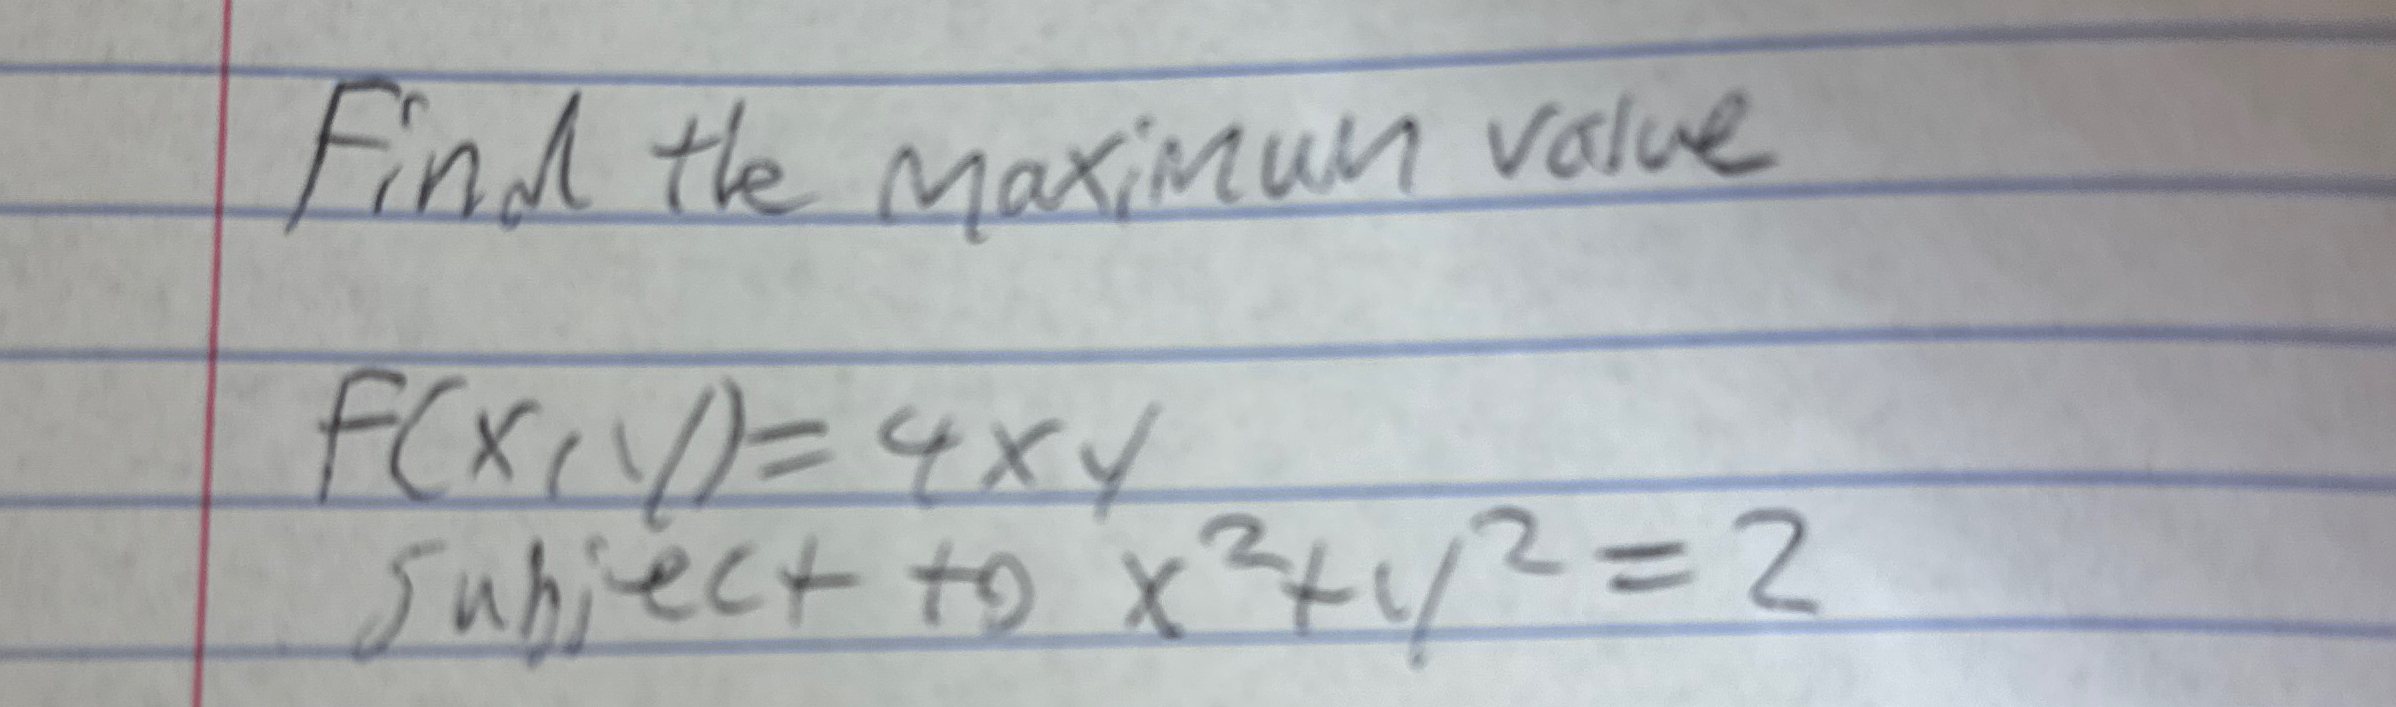 Find the maximum value
F(x,y)=4xy
subject to x²+y²=2